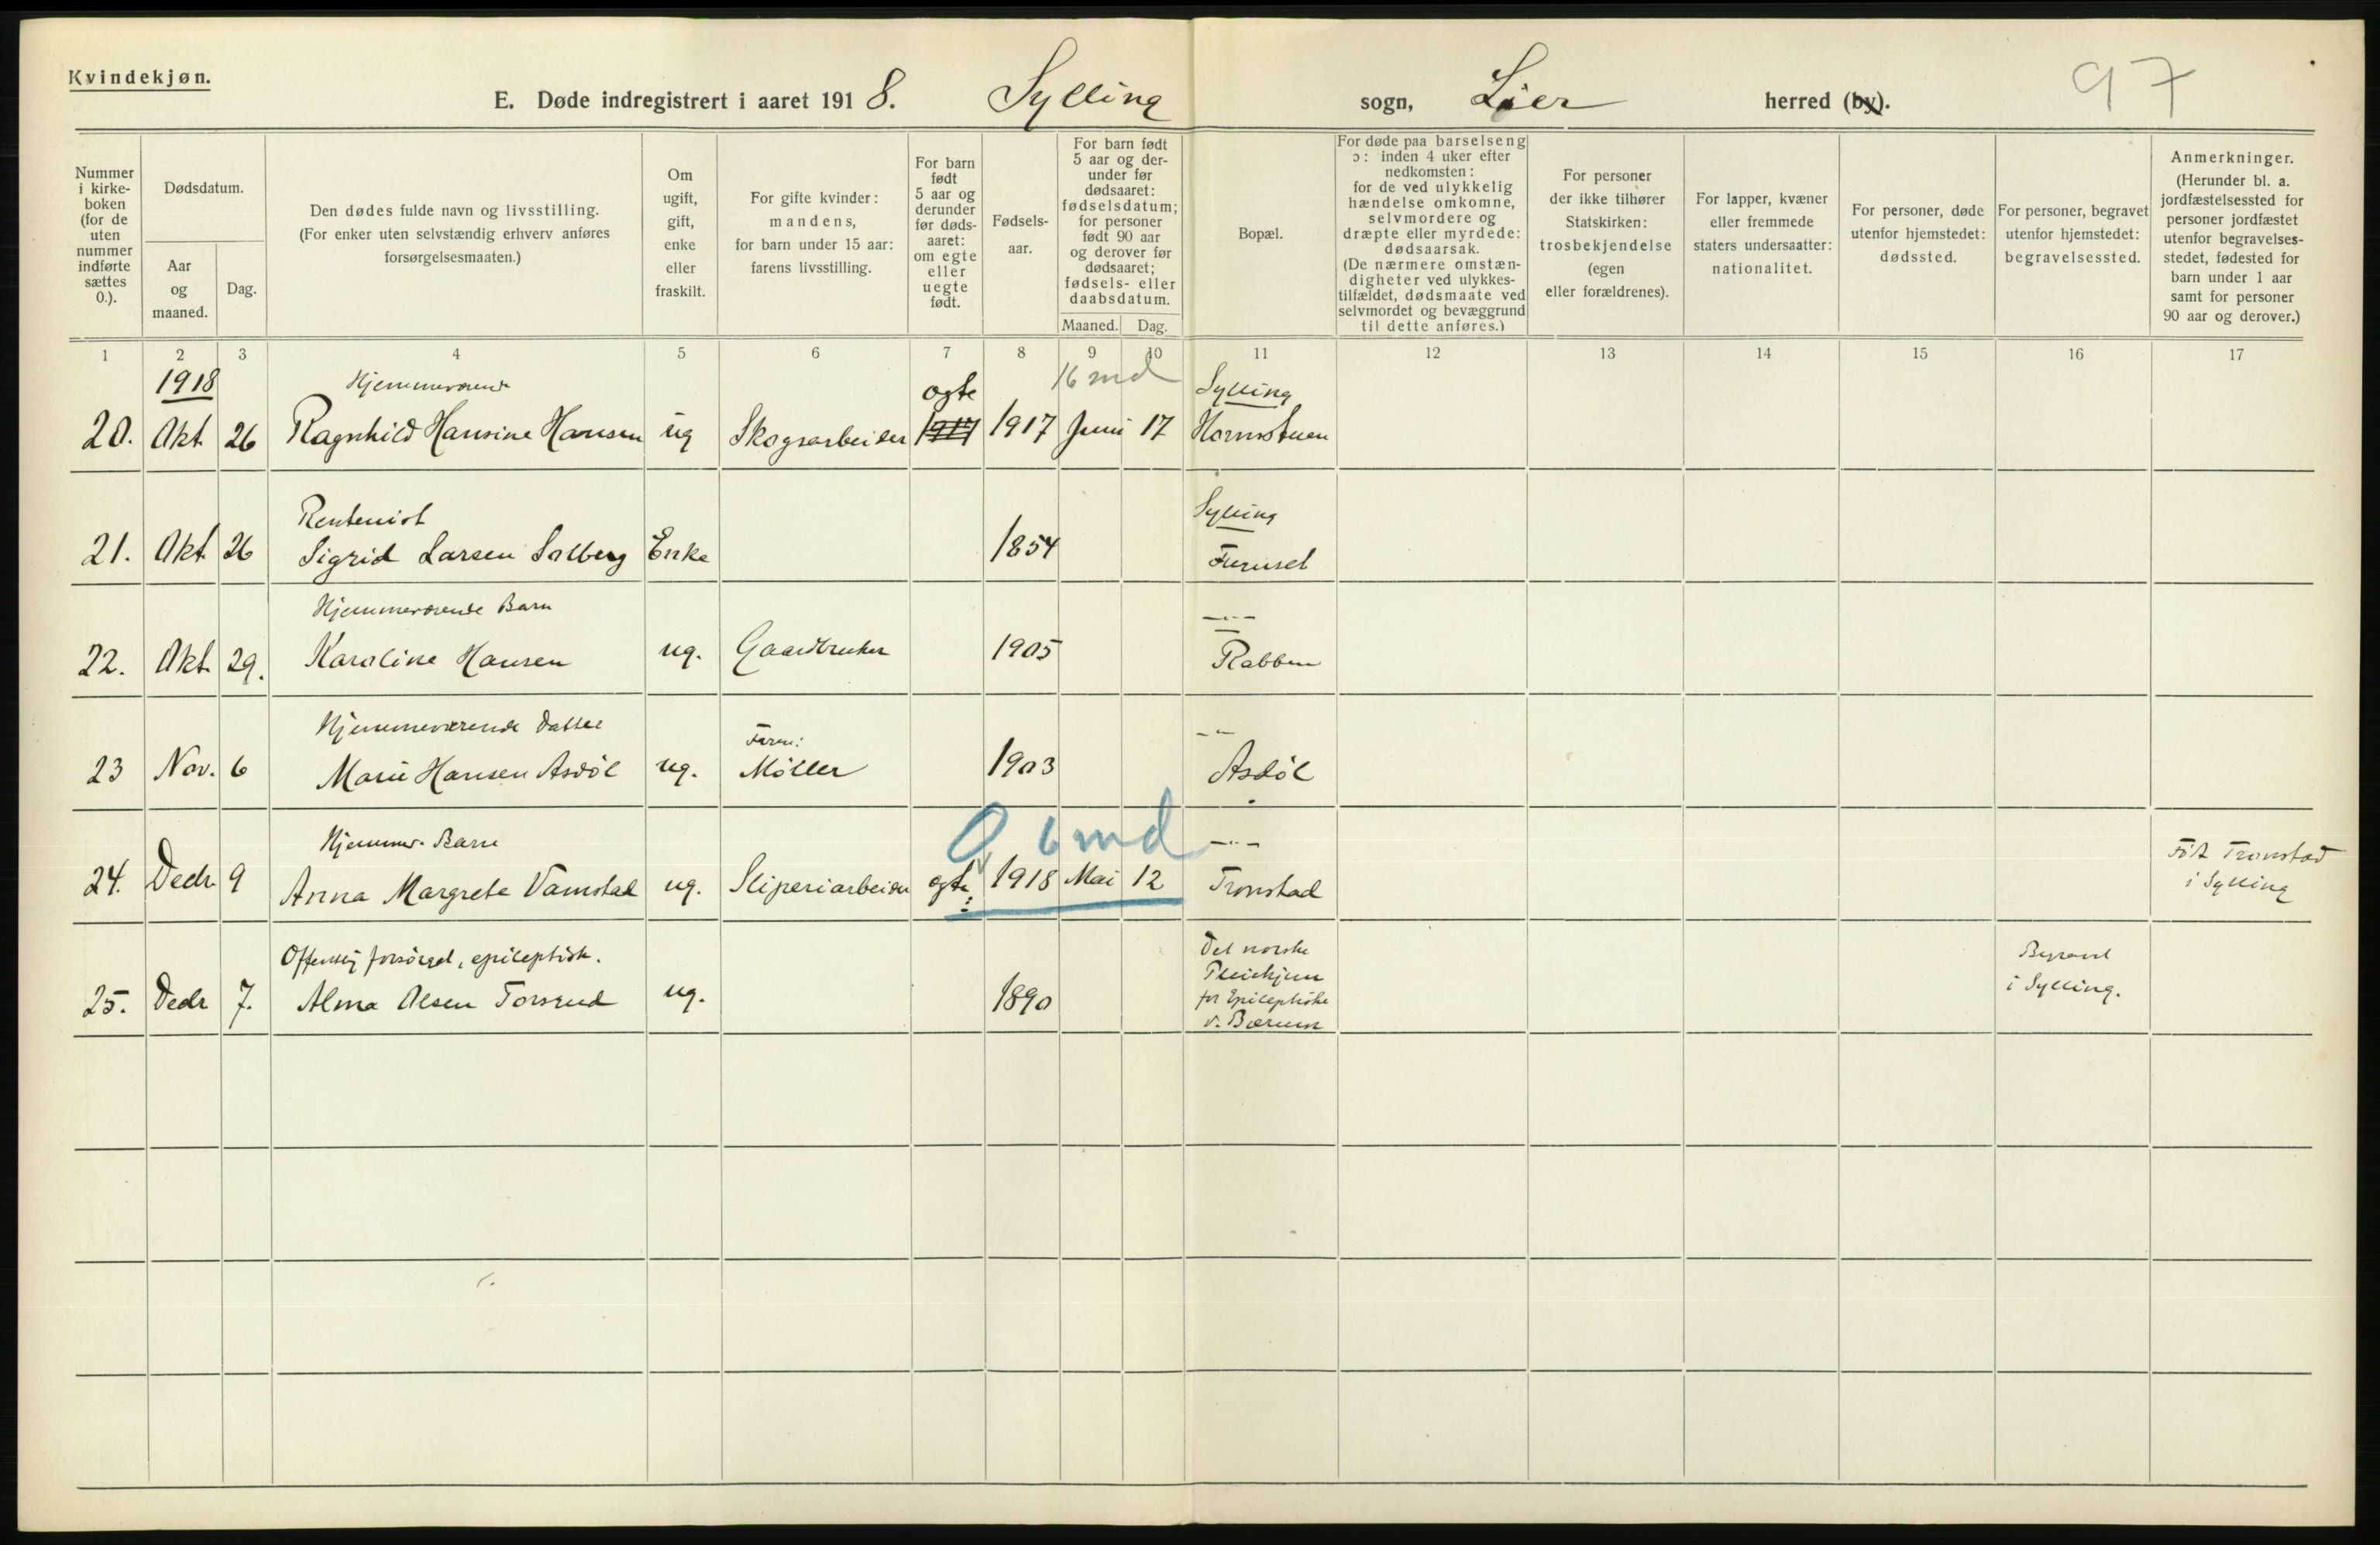 Kvindekjøn.
E. Døde indregistrert i aaret 1918. Sylling sogn, Lier herred (by). 97
Nummer i kirkeboken (for de uten nummer indførte sættes 0.).
Dødsdatum.
Aar og maaned.
Dag.
Den dødes fulde navn og livsstilling.
(For enker uten selvstændig erhverv anføres
forsørgelsesmaaten.)
Om ugift, gift, enke eller fraskilt.
For gifte kvinder:
mandens,
for barn under 15 aar:
farens livsstilling.
For barn født 5 aar og derunder før dødsaaret: om egte eller uegte født.
Fødselsaar.
For barn født 5 aar og derunder før dødsaaret: fødselsdatum; for personer født 90 aar og derover før dødsaaret; fødsels- eller daabsdatum.
Maaned. Dag.
Bopæl.
For døde paa barselseng
ɔ: inden 4 uker efter
nedkomsten:
for de ved ulykkelig
hændelse omkomne,
selvmordere og
dræpte eller myrdede:
dødsaarsak.
(De nærmere omstæn-
digheter ved ulykkes-
tilfældet, dødsmaate ved
selvmordet og bevæggrund
til dette anføres.)
For personer
der ikke tilhører
Statskirken:
trosbekjendelse
(egen
eller forældrenes).
For lapper, kvæner
eller fremmede
staters undersaatter:
nationalitet.
For personer, døde
utenfor hjemstedet:
dødssted.
For personer, begravet
utenfor hjemstedet:
begravelsessted.
Anmerkninger.
(Herunder bl. a.
jordfæstelsessted for
personer jordfæstet
utenfor begravelses-
stedet, fødested for
barn under 1 aar
samt for personer
90 aar og derover.)
1 2 3 4 5 6 7 8 9 10 11 12 13 14 15 16 17
1918 Hjemmeværende egte 16 md Sylling
20. Okt. 26 Ragnhild Hansine Hansen ug Skogsarbeider 1917 1917 Juni 17 Hornstuen
Rentenist Sylling
21. Okt. 26 Sigrid Larsen Solberg Enke 1854 Furuset
Hjemmeværende Barn —"—
22. Okt. 29. Karoline Hansen ug. Gaardbruker 1905 Rabben
Hjemmeværende Datter Faren: —"—
23 Nov. 6 Marie Hansen Asdøl ug. Møller 1903 Asdøl
Hjemmev. Barn 0 6 md —"— Født Tronstad
24. Decbr 9 Anna Margrete Vamstad ug. Sliperiarbeider egte 1918 Mai 12 Tronstad i Sylling
Offentlig forsørget, epileptisk. Det norske Begravet
Pleiehjem
25. Decbr 7. Alma Olsen Torsrud ug. 1890 for Epileptiske i Sylling.
v. Bærum